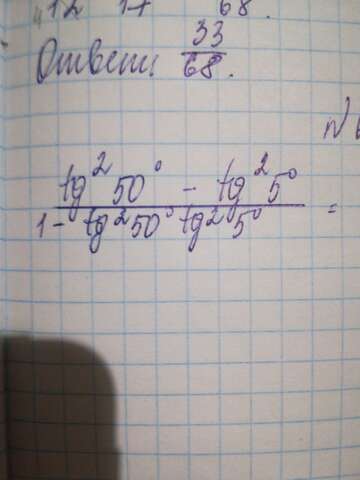 12 17 68.
Ответ: 33/68.
№
tg²50° - tg²5°
1 - tg²50° tg²5° =